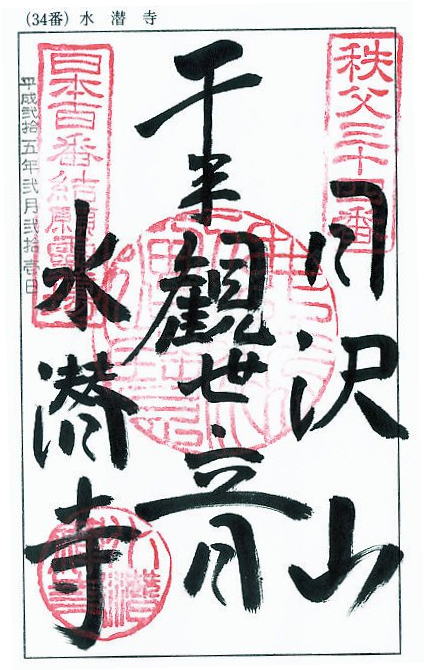 (34番) 水潜寺
秩父三十四番
日沢山
千手観世音
日本百番結願
水潜寺
平成弐拾五年弐月弐拾壱日